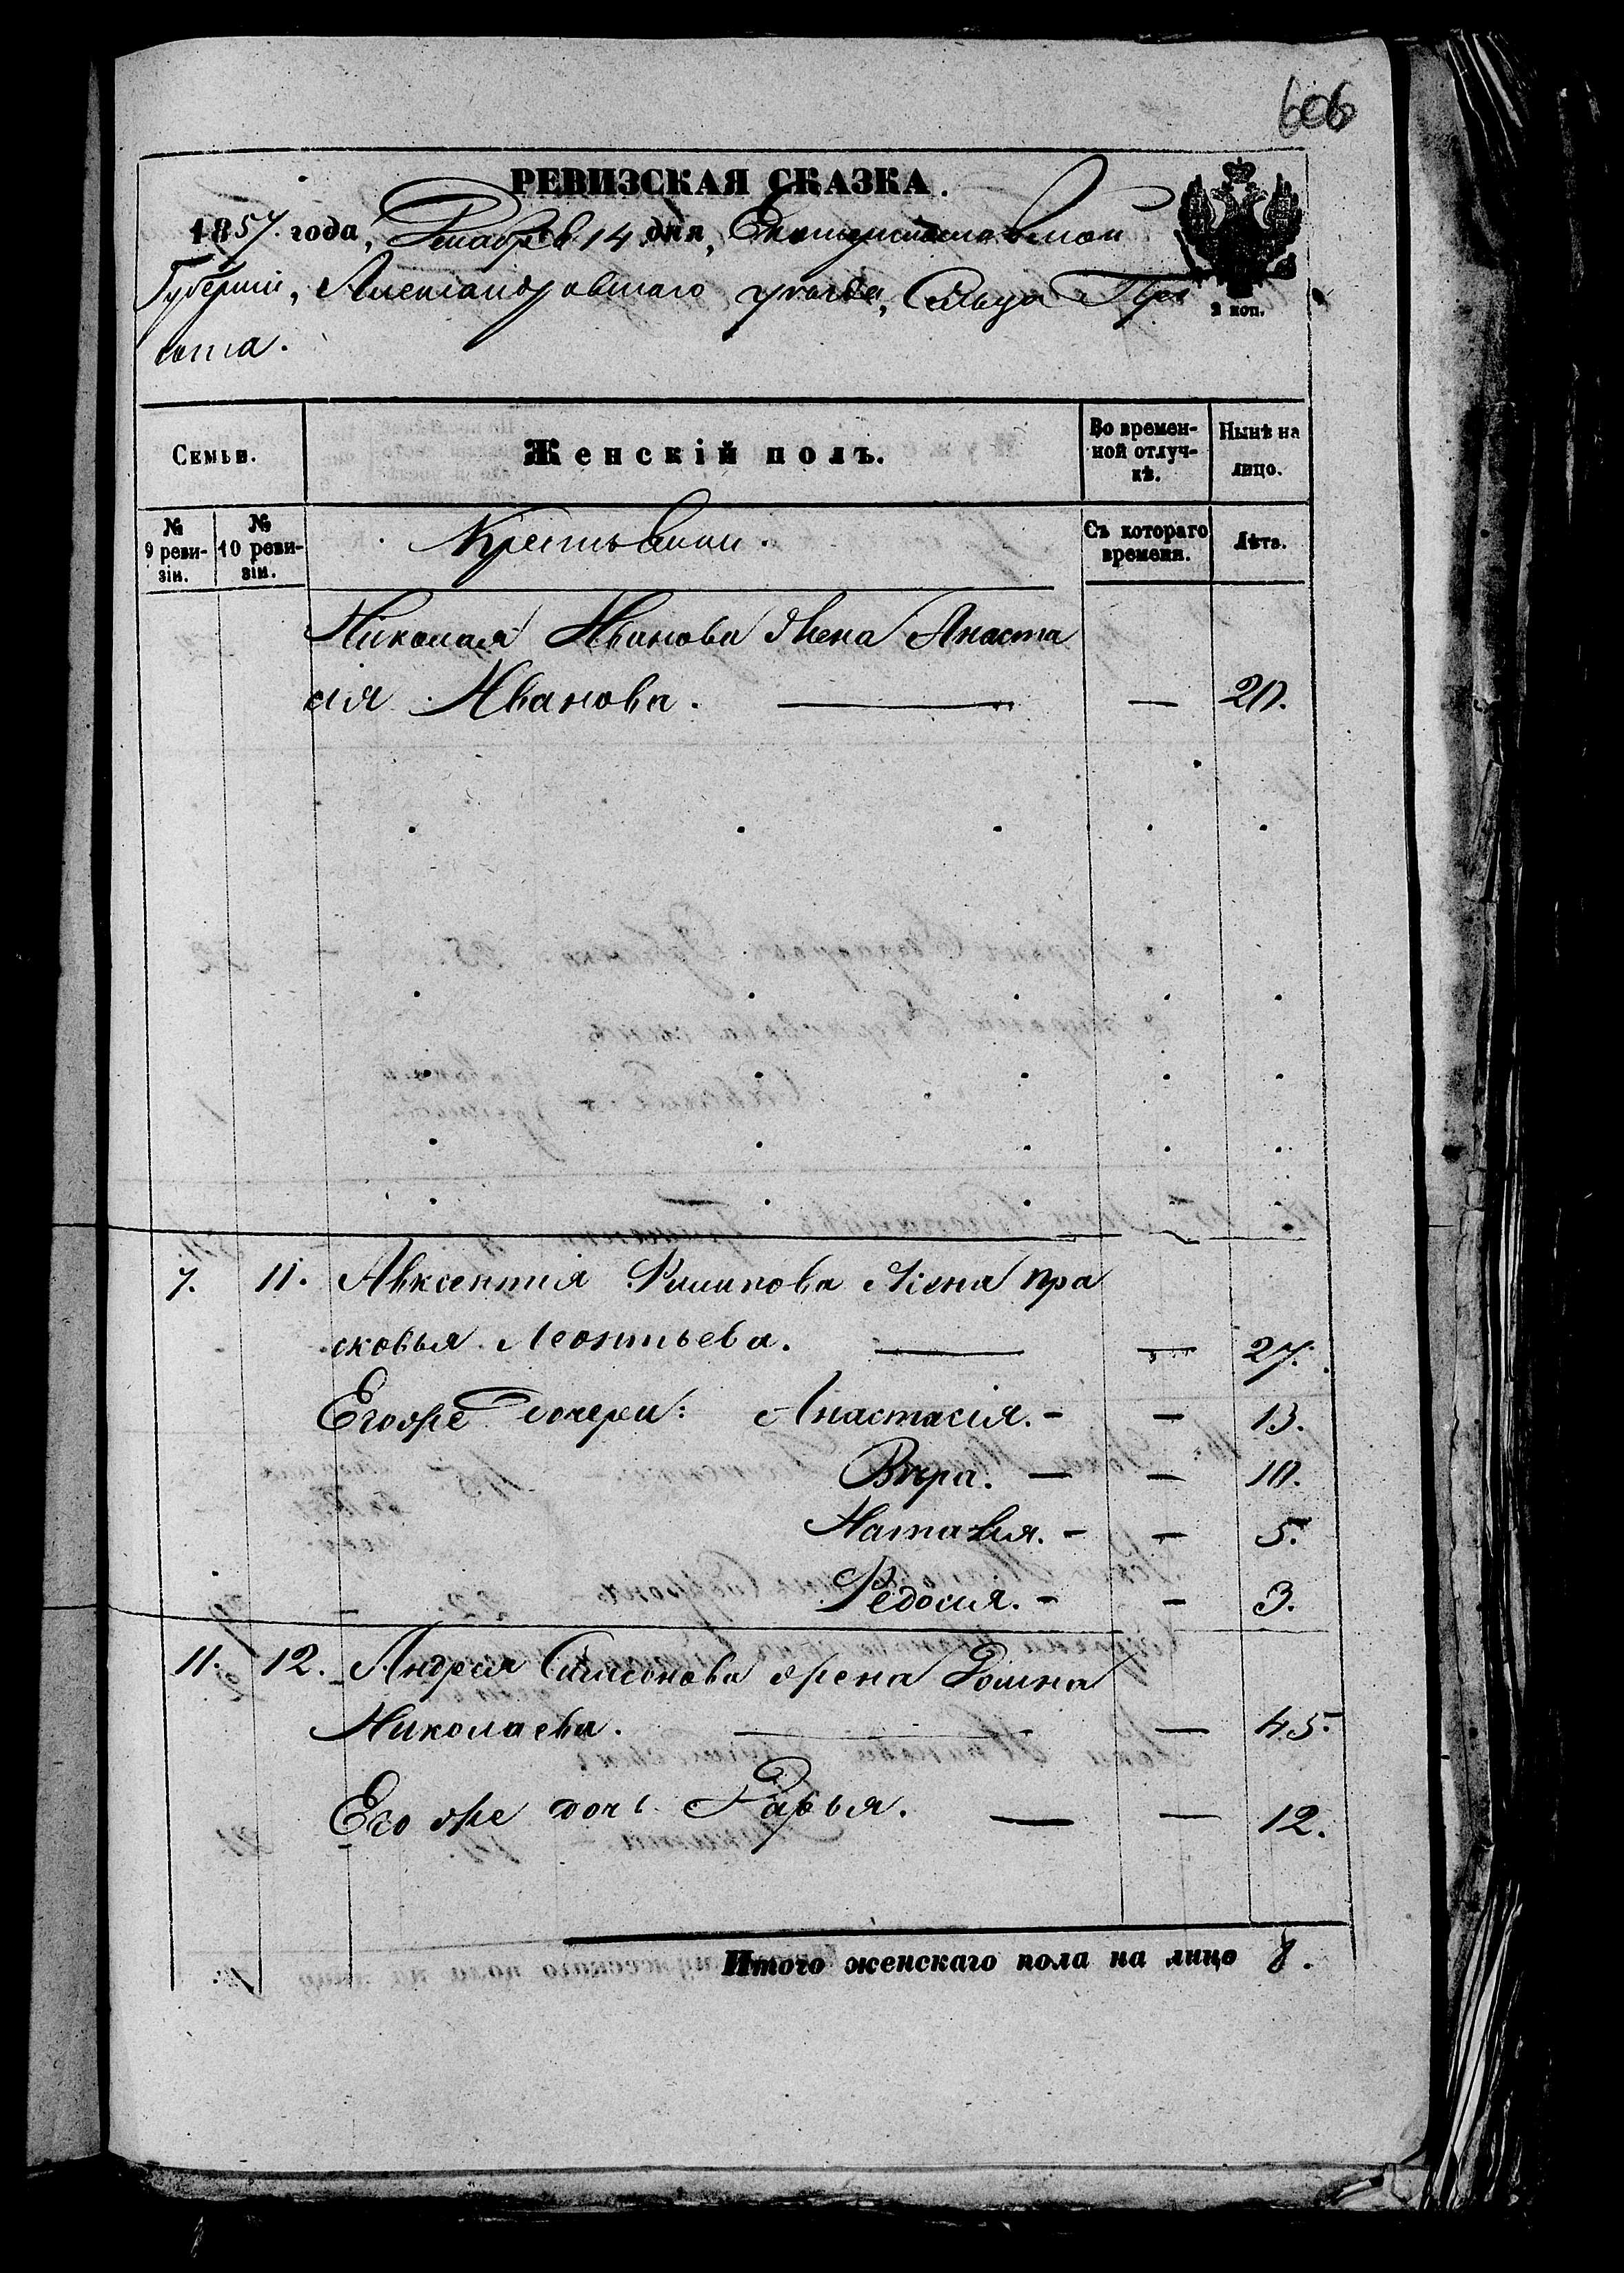 606
РЕВИЗСКАЯ СКАЗКА.
1857. года, 14 дня, Екатеринославской
Губерніи, Александровскаго уѣзда, Сельца
Семьи. Женскій полъ. Во времен-ной отлуч-кѣ. Нынѣ на лицо.
№ 9 реви-зіи. № 10 реви-зіи. Крестьянки. Съ котораго времени. Лѣта.
2 коп.
Николая Иванова жена Анаста
сія Иванова. — — 20.
7. 11. Авксентія Филипова жена Пра
сковья Леонтьева. — — 27.
Его же дочери: Анастасія. - - 13.
Вѣра. — - 10.
Наталья. - - 5.
Федосия. - - 3.
11. 12. Андрея Симонова жена Домна
Николаева. — — 45.
Его же дочь Дарья. — — 12.
Итого женскаго пола на лицо 8.